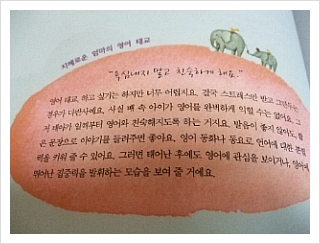 지혜로운 엄마의 영어 태교
"욕심내지 말고 친숙하게 해요."
영어 태교, 하고 싶기는 하지만 너무 어렵지요. 결국 스트레스만 받고 그만두는
경우가 다반사예요. 사실 배 속 아이가 영어를 완벽하게 익힐 수는 없어요. 그
저 태아가 일찍부터 영어와 친숙해지도록 하는 거지요. 발음이 좋지 않아도, 짧
은 문장으로 이야기를 들려주면 좋아요. 영어 동화나 동요로 언어에 대한
력을 키워 줄 수 있어요. 그러면 태어난 후에도 영어에 관심을 보이거나,
뛰어난 집중력을 발휘하는 모습을 보여 줄 거예요.